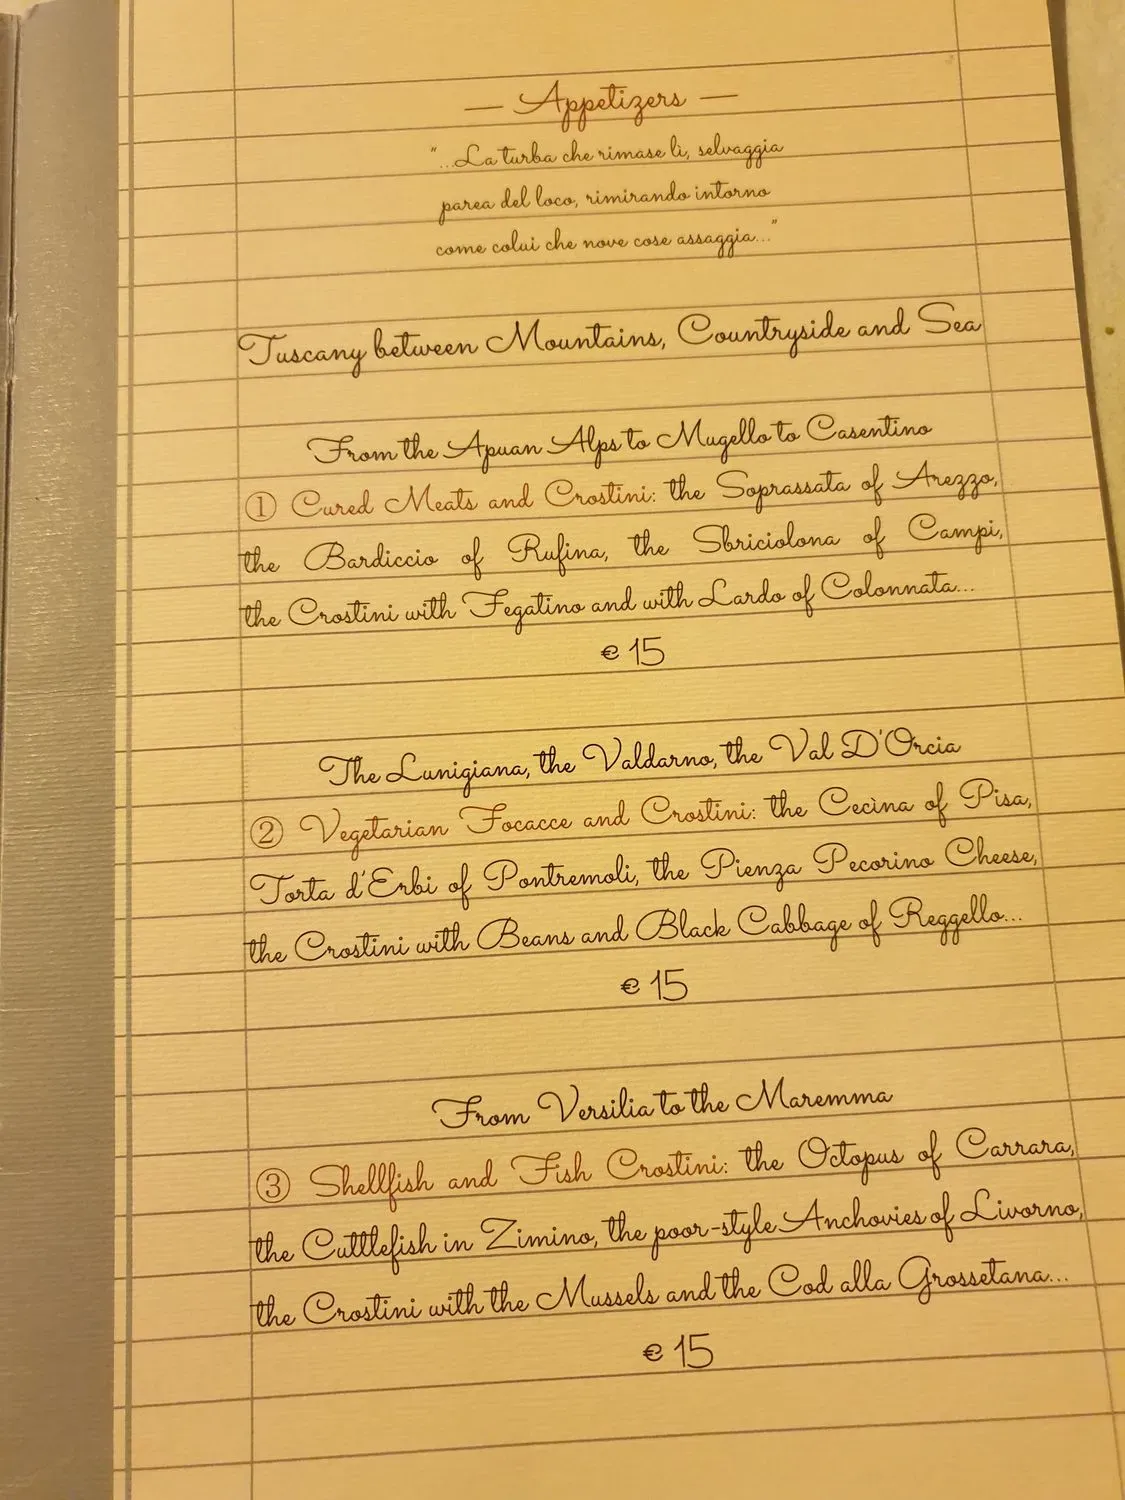 — Appetizers —
"...La turba che rimase lì, selvaggia
parea del loco, rimirando intorno
come colui che nove cose assaggia..."
Tuscany between Mountains, Countryside and Sea
From the Apuan Alps to Mugello to Casentino
① Cured Meats and Crostini: the Soprassata of Arezzo,
the Bardiccio of Rufina, the Sbriciolona of Campi,
the Crostini with Fegatino and with Lardo of Colonnata...
€ 15
The Lunigiana, the Valdarno, the Val D'Orcia
② Vegetarian Focacce and Crostini: the Cecìna of Pisa,
Torta d'Erbi of Pontremoli, the Pienza Pecorino Cheese,
the Crostini with Beans and Black Cabbage of Reggello...
€ 15
From Versilia to the Maremma
③ Shellfish and Fish Crostini: the Octopus of Carrara,
the Cuttlefish in Zimino, the poor-style Anchovies of Livorno,
the Crostini with the Mussels and the Cod alla Grossetana...
€ 15